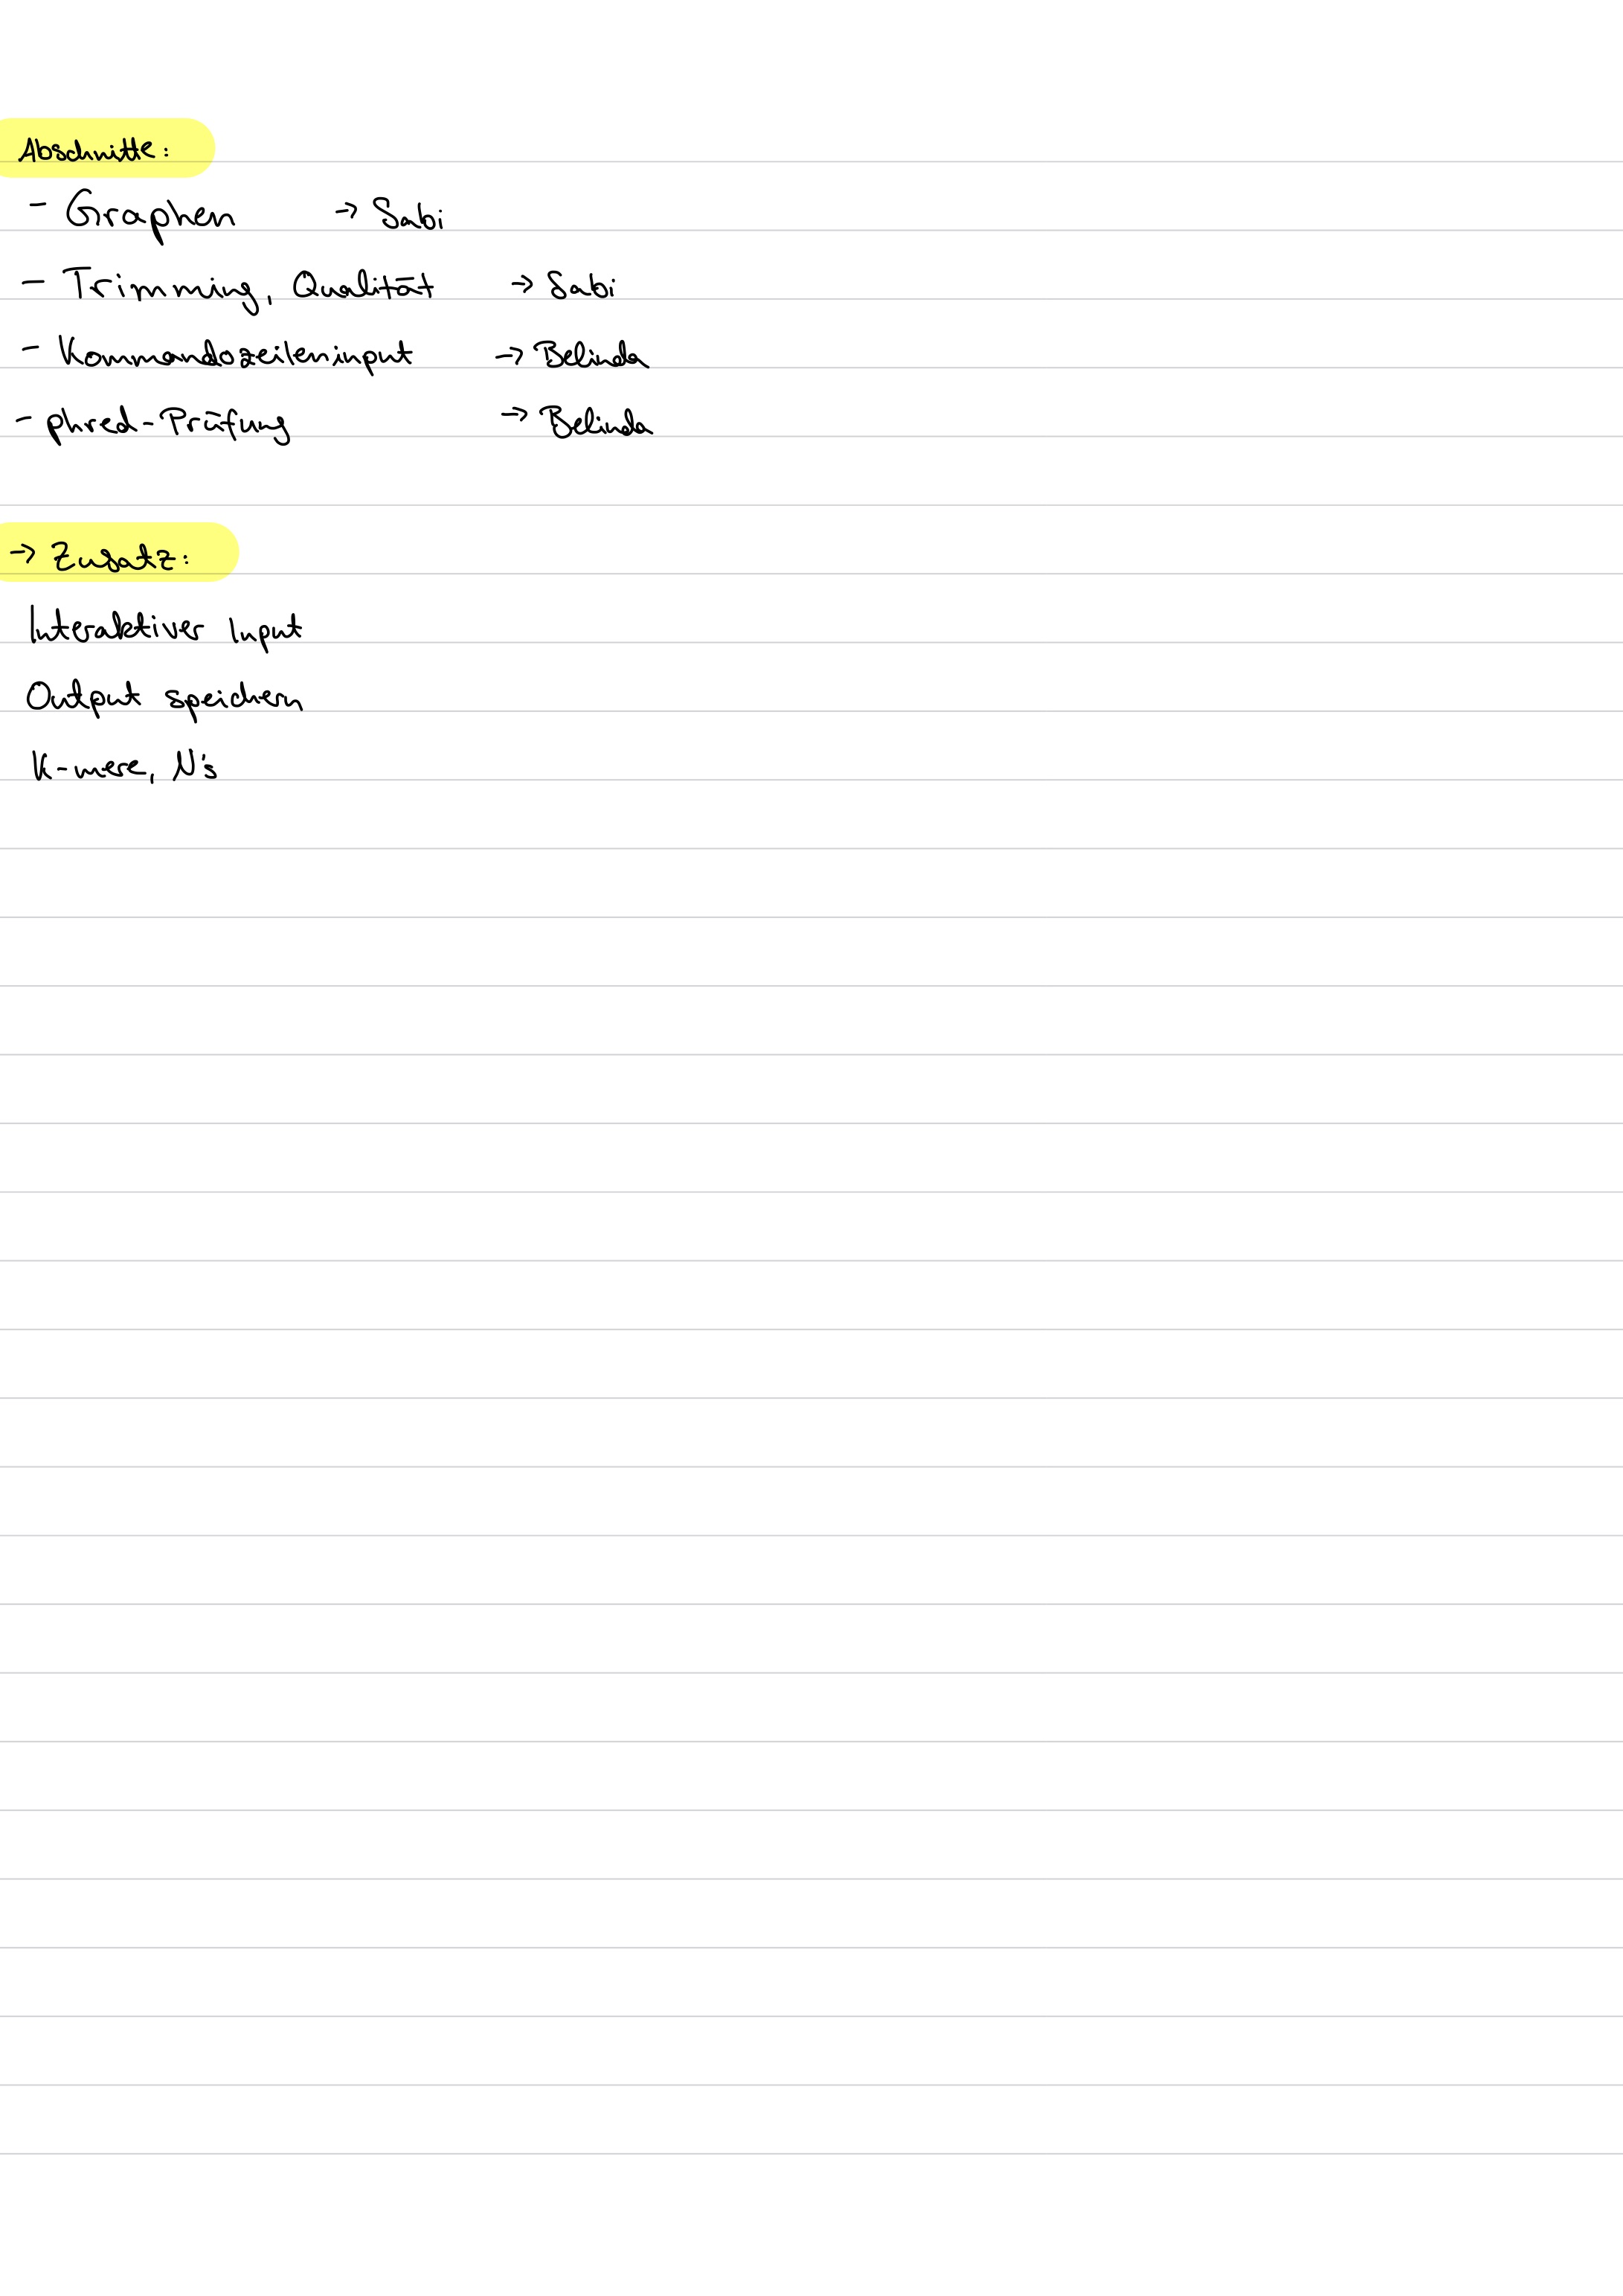 Abschnitte:
- Graphen → Sabi
- Trimming, Qualität → Sabi
- Kommandozeileninput → Belinda
- phred-Prüfung → Belinda
→ Zusatz:
Interaktiver Input
Output speichern
K-mere, N's